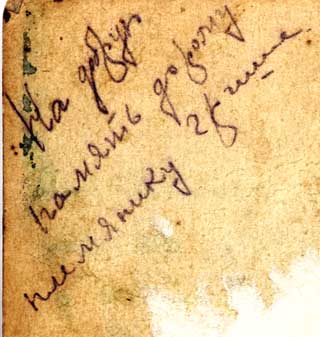 На добрую
память дорогому
племянику Грише